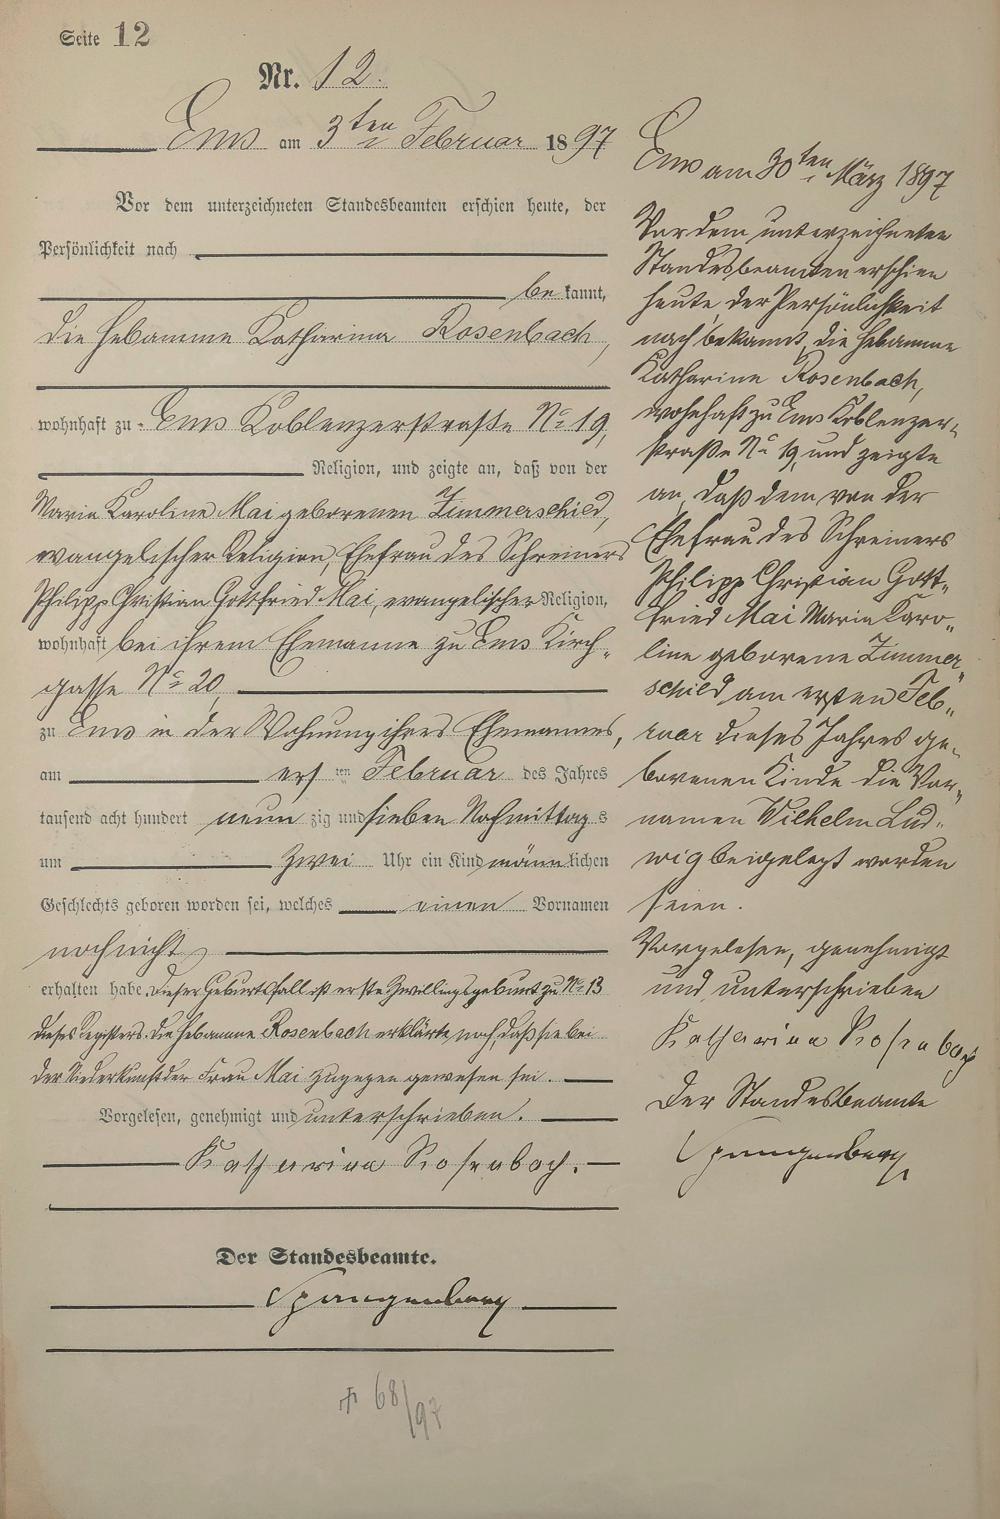 Seite 12
Nr. 12.
Ems am 3ten Februar 1897
Vor dem unterzeichneten Standesbeamten erschien heute, der
Persönlichkeit nach
be kannt,
die Hebamme Katharina Rosenbach,
wohnhaft zu Ems Koblenzerstraße No 19,
Religion, und zeigte an, daß von der
Maria Karoline Mai geborenen Zimmerschied,
evangelischer Religion, Ehefrau des Schreiners
Philipp Christian Gottfried Mai, evangelischer Religion,
wohnhaft bei ihrem Ehemanne zu Ems Kirch-
gasse No 20,
zu Ems in der Wohnung ihres Ehemannes,
am ersten Februar des Jahres
tausend acht hundert neun zig und sieben Nachmittags
um zwei Uhr ein Kind männlichen
Geschlechts geboren worden sei, welches einen Vornamen
noch nicht
erhalten habe. Dieser Geburtsfall ist erste Zwillingsgeburt zu No 13
dieses Registers. Die Hebamme Rosenbach erklärte noch, daß sie bei
der Niederkunft der Frau Mai zugegen gewesen sei.
Vorgelesen, genehmigt und unterschrieben.
Katharina Rosenbach.
Der Standesbeamte.
Spangenberg
+ 68/97
Ems am 30ten März 1897
Vor dem unterzeichneten
Standesbeamten erschien
heute, der Persönlichkeit
nach bekannt, die Hebamme
Katharina Rosenbach,
wohnhaft zu Ems Koblenzer-
straße No 19, und zeigte
an, daß dem von der
Ehefrau des Schreiners
Philipp Christian Gott-
fried Mai Maria Karo-
line geborene Zimmer-
schied am ersten Feb-
ruar dieses Jahres ge-
borenen Kinde die Vor-
namen Wilhelm Lud-
wig beigelegt worden
seien.
Vorgelesen, genehmigt
und unterschrieben
Katharina Rosenbach
Der Standesbeamte
Spangenberg